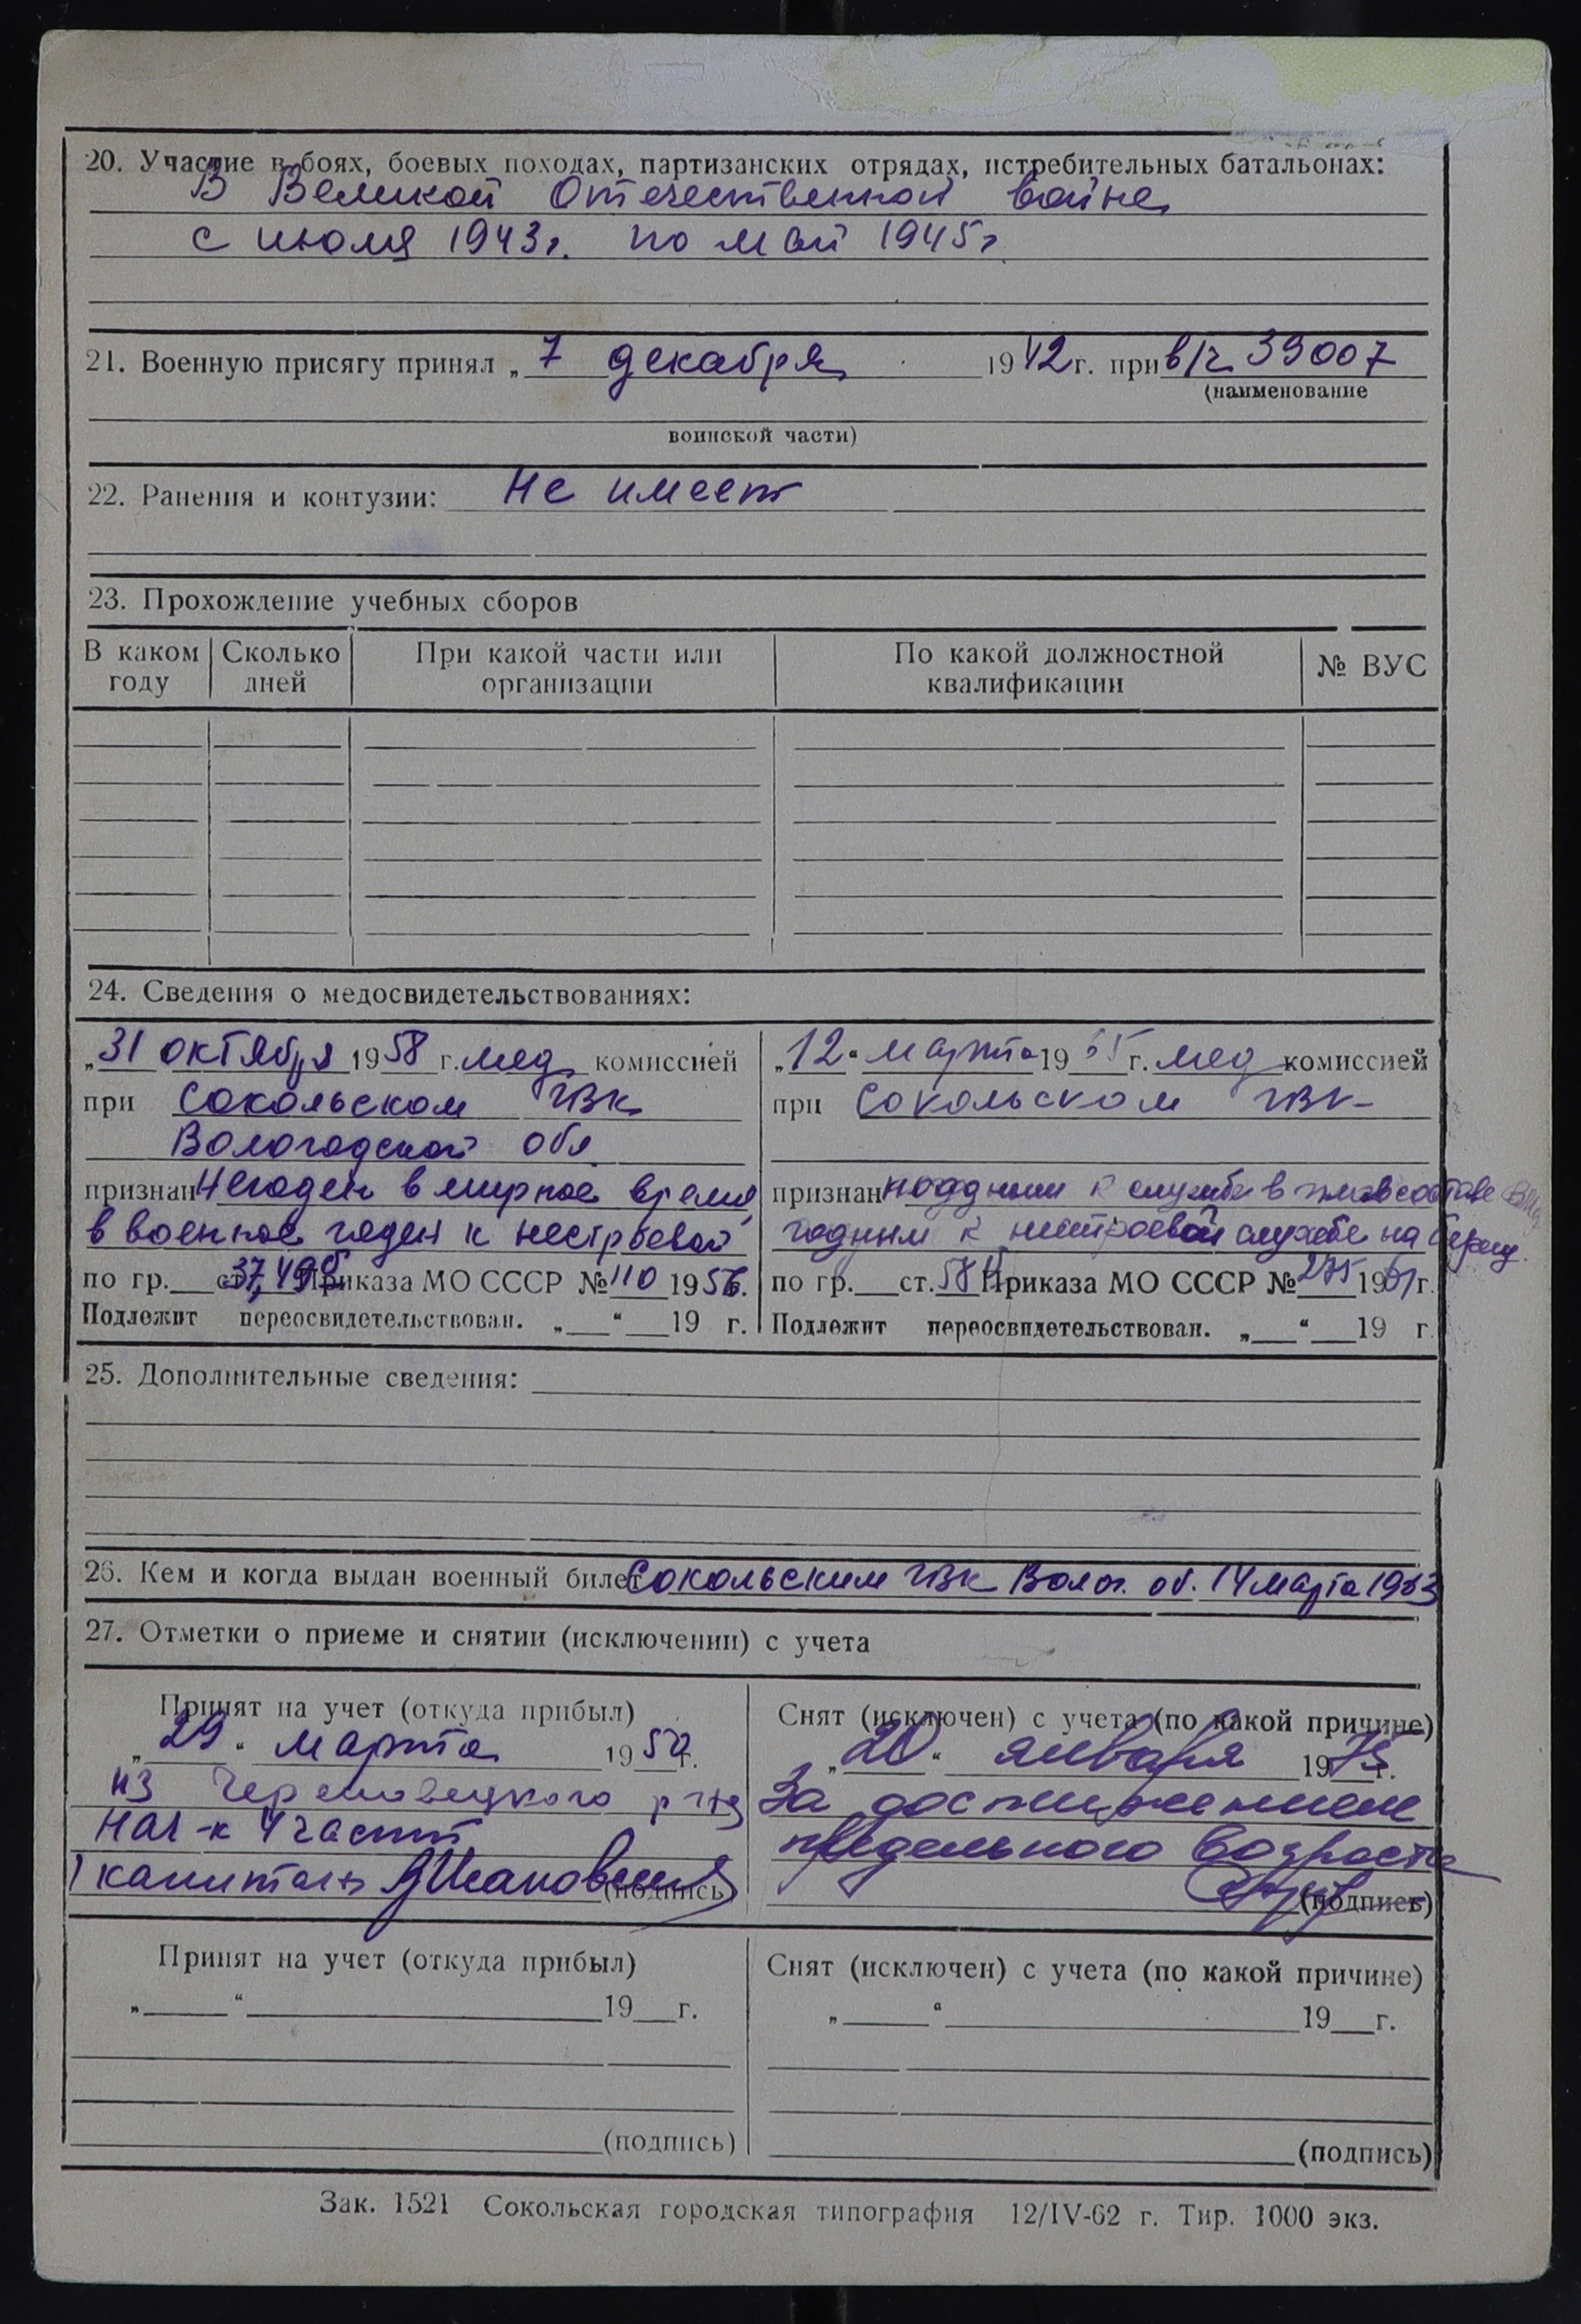 20. Участие в боях, боевых походах, партизанских отрядах, истребительных батальонах:
В Великой Отечественной войне
с июля 1943г. по май 1945г
21. Военную присягу принял „ 7 декабря 1942г. при в/ч 39007
(наименование
воинской части)
22. Ранения и контузии: Не имеет
23. Прохождение учебных сборов
В каком году | Сколько дней | При какой части или организации | По какой должностной квалификации | № ВУС
24. Сведения о медосвидетельствованиях:
„31 октября 1958 г. мед комиссией
при Сокольском ГВК
Вологодской обл.
признан Негоден в мирное время,
в военное годен к нестроевой
по гр. ст. 37, Приказа МО СССР №110 1956.
Подлежит переосвидетельствован. „ “ 19 г.
„12“ марта 19 г. мед комиссией
при Сокольском ГВК
признан к службе в
годным к нестроевой службе на берегу.
по гр. ст. Приказа МО СССР №275 1961г.
Подлежит переосвидетельствован. „ “ 19 г.
25. Дополнительные сведения:
26. Кем и когда выдан военный билет Сокольским ГВК Волог. об. 14 марта 1963
27. Отметки о приеме и снятии (исключении) с учета
Принят на учет (откуда прибыл)
„ 29 “ марта 19 г.
из Череповецкого
Нач-к 4 части
капитан
(подпись)
Снят (исключен) с учета (по какой причине)
„ 20 “ января 1975 г.
За достижением
предельного возраста
(подпись)
Принят на учет (откуда прибыл)
„ “ 19 г.
(подпись)
Снят (исключен) с учета (по какой причине)
„ “ 19 г.
(подпись)
Зак. 1521 Сокольская городская типография 12/IV-62 г. Тир. 1000 экз.